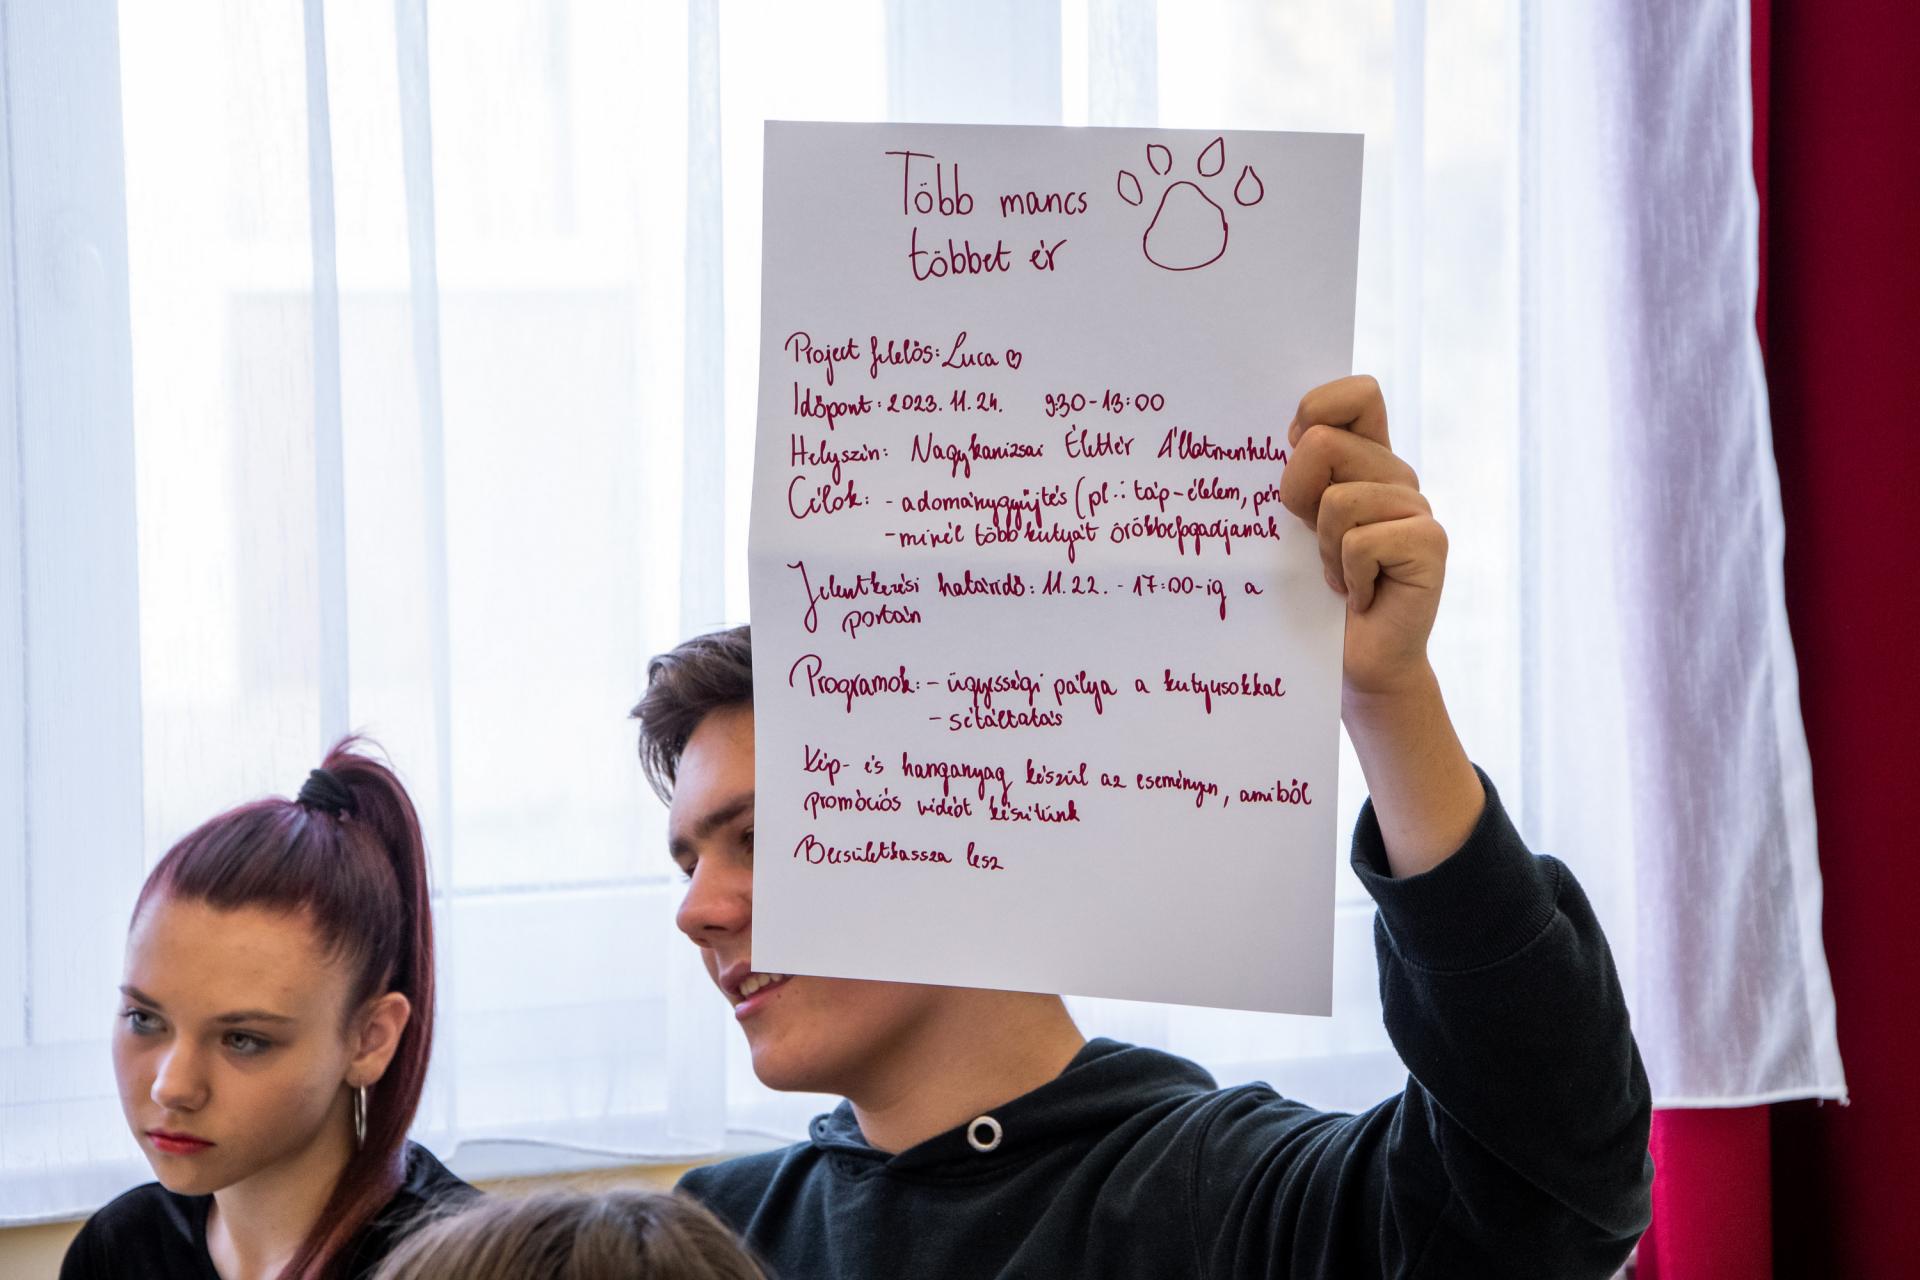 Több mancs
többet ér
Project felelős: Luca ♡
Időpont: 2023. 11. 24. 9:30-13:00
Helyszín: Nagykanizsai Élettér Állatmenhely
Célok: - adománygyűjtés (pl.: táp-élelem, pén
- minél több kutyát örökbefogadjanak
Jelentkezési határidő: 11. 22. - 17:00-ig a
portán
Programok: - ügyességi pálya a kutyusokkal
- sétáltatás
Kép- és hanganyag készül az eseményen, amiből
promóciós videót készítünk
Becsületkassza lesz